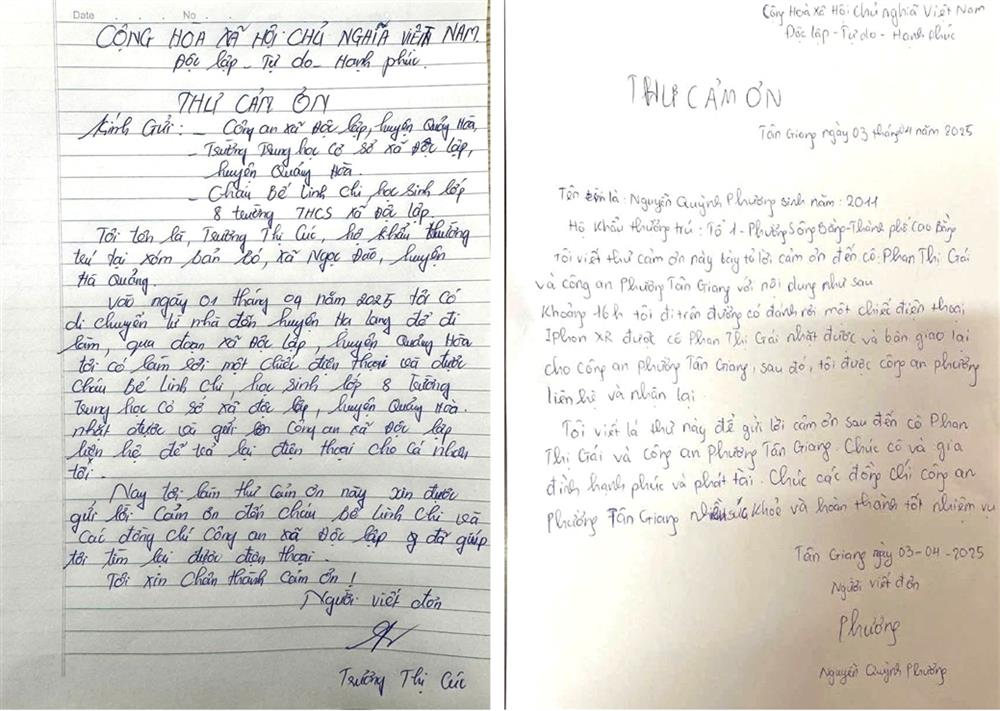 Date No
CỘNG HÒA XÃ HỘI CHỦ NGHĨA VIỆT NAM
Độc lập - Tự do - Hạnh phúc.
THƯ CẢM ƠN
Kính Gửi: - Công an xã Độc lập, huyện Quảng Hòa,
- Trường Trung học cơ sở xã Độc lập,
huyện Quảng Hòa.
- Cháu Bế Linh Chi, học sinh lớp
8 trường THCS xã Độc lập.
Tôi tên là, Trương Thị Cúc, hộ khẩu thường
trú tại xóm bản bó, xã Ngọc Đào, huyện
Hà Quảng.
Vào ngày 01 tháng 04 năm 2025 tôi có
di chuyển từ nhà đến huyện Hạ lang để đi
làm, qua đoạn xã Độc lập, huyện Quảng Hòa
tôi có làm rơi một chiếc điện thoại và được
cháu Bế Linh Chi, học sinh lớp 8 Trường
Trung học cơ sở xã độc lập, huyện Quảng Hòa.
nhặt được và gửi lên Công an xã Độc lập
liên hệ để trả lại điện thoại cho cá nhân
tôi.
Nay tôi làm thư cảm ơn này xin được
gửi lời Cảm ơn đến cháu Bế Linh Chi và
các đồng chí Công an xã Độc lập đã giúp
tôi tìm lại được điện thoại.
Tôi xin Chân thành Cảm ơn!
Người viết đơn
Trương Thị Cúc
Cộng Hoà Xã Hội Chủ nghĩa Việt Nam
Độc lập - Tự do - Hạnh phúc
THƯ CẢM ƠN
Tân Giang ngày 03 tháng 04 năm 2025
Tên là: Nguyễn Quỳnh Phương sinh năm: 2011
Hộ Khẩu thường trú: Tổ 1 - Phường Sông Bằng - Thành phố Cao Bằng
Tôi viết thư cảm ơn này bày tỏ lời cảm ơn đến cô Phan Thị Gái
và công an Phường Tân Giang với nội dung như sau
Khoảng 16h tôi đi trên đường có đánh rơi một chiếc điện thoại
Iphon XR được cô Phan Thị Gái nhặt được và bàn giao lại
cho công an Phường Tân Giang, sau đó, tôi được công an phường
liên hệ và nhận lại.
Tôi viết lá thư này để gửi lời cảm ơn sau đến cô Phan
Thị Gái và công an Phường Tân Giang. Chúc cô và gia
đình hạnh phúc và phát tài. Chúc các đồng chí công an
Phường Tân Giang nhiều sức khoẻ và hoàn thành tốt nhiệm vụ
Tân Giang ngày 03-04-2025
Người viết đơn
Phương
Nguyễn Quỳnh Phương